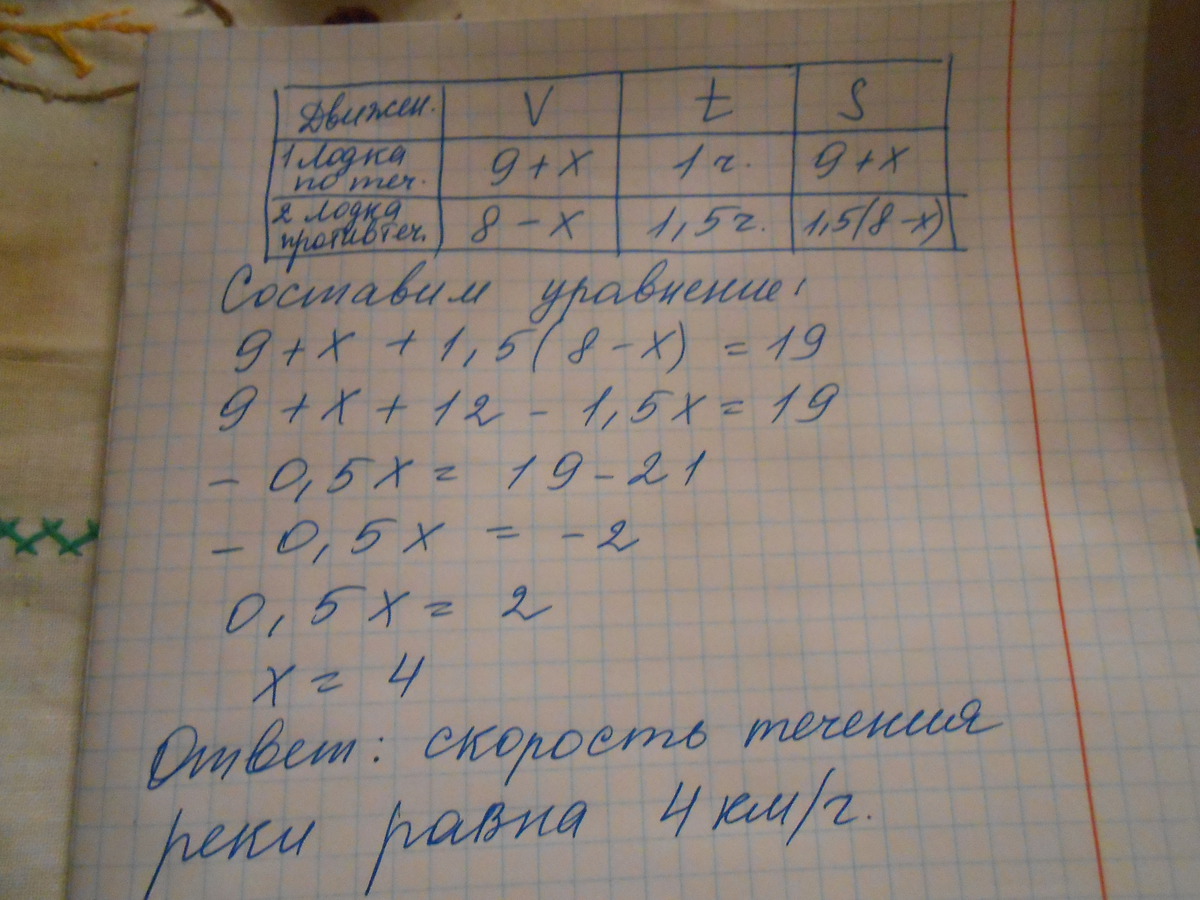 Движен. V t S
1 лодка по теч. 9 + x 1 ч. 9 + x
2 лодка против теч. 8 - x 1,5 ч. 1,5(8-x)
Составим уравнение:
9 + x + 1,5(8 - x) = 19
9 + x + 12 - 1,5x = 19
- 0,5x = 19 - 21
- 0,5x = -2
0,5x = 2
x = 4
Ответ: скорость течения
реки равна 4 км/ч.